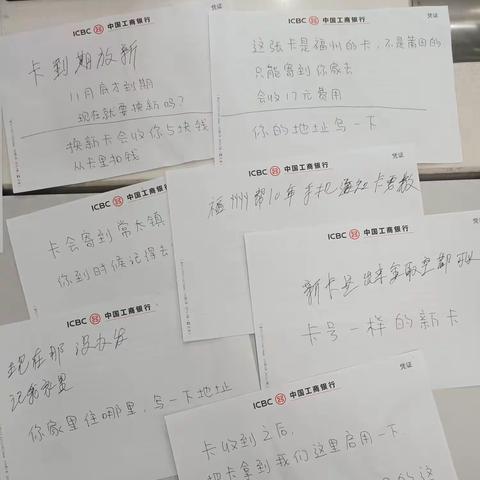 ICBC 中国工商银行
凭证
卡到期放新
11月底才到期
现在就要换新吗?
换新卡会收你5块钱
从卡里扣钱
ICBC 中国工商银行
凭证
这张卡是福州的卡,不是莆田的
只能寄到你家去
会收17元费用
你的地址写一下
ICBC 中国工商银行
卡会寄到常太镇
你到时候记得去
ICBC 中国工商银行
凭证
福州 10年手机 卡
ICBC 中国工商银行
凭证
新卡是 都可以
卡号一样的新卡
ICBC 中国工商银行
现在那没办发
你家里住哪里,写一下地址
ICBC 中国工商银行
凭证
卡收到之后,
把卡拿到我们这里启用一下